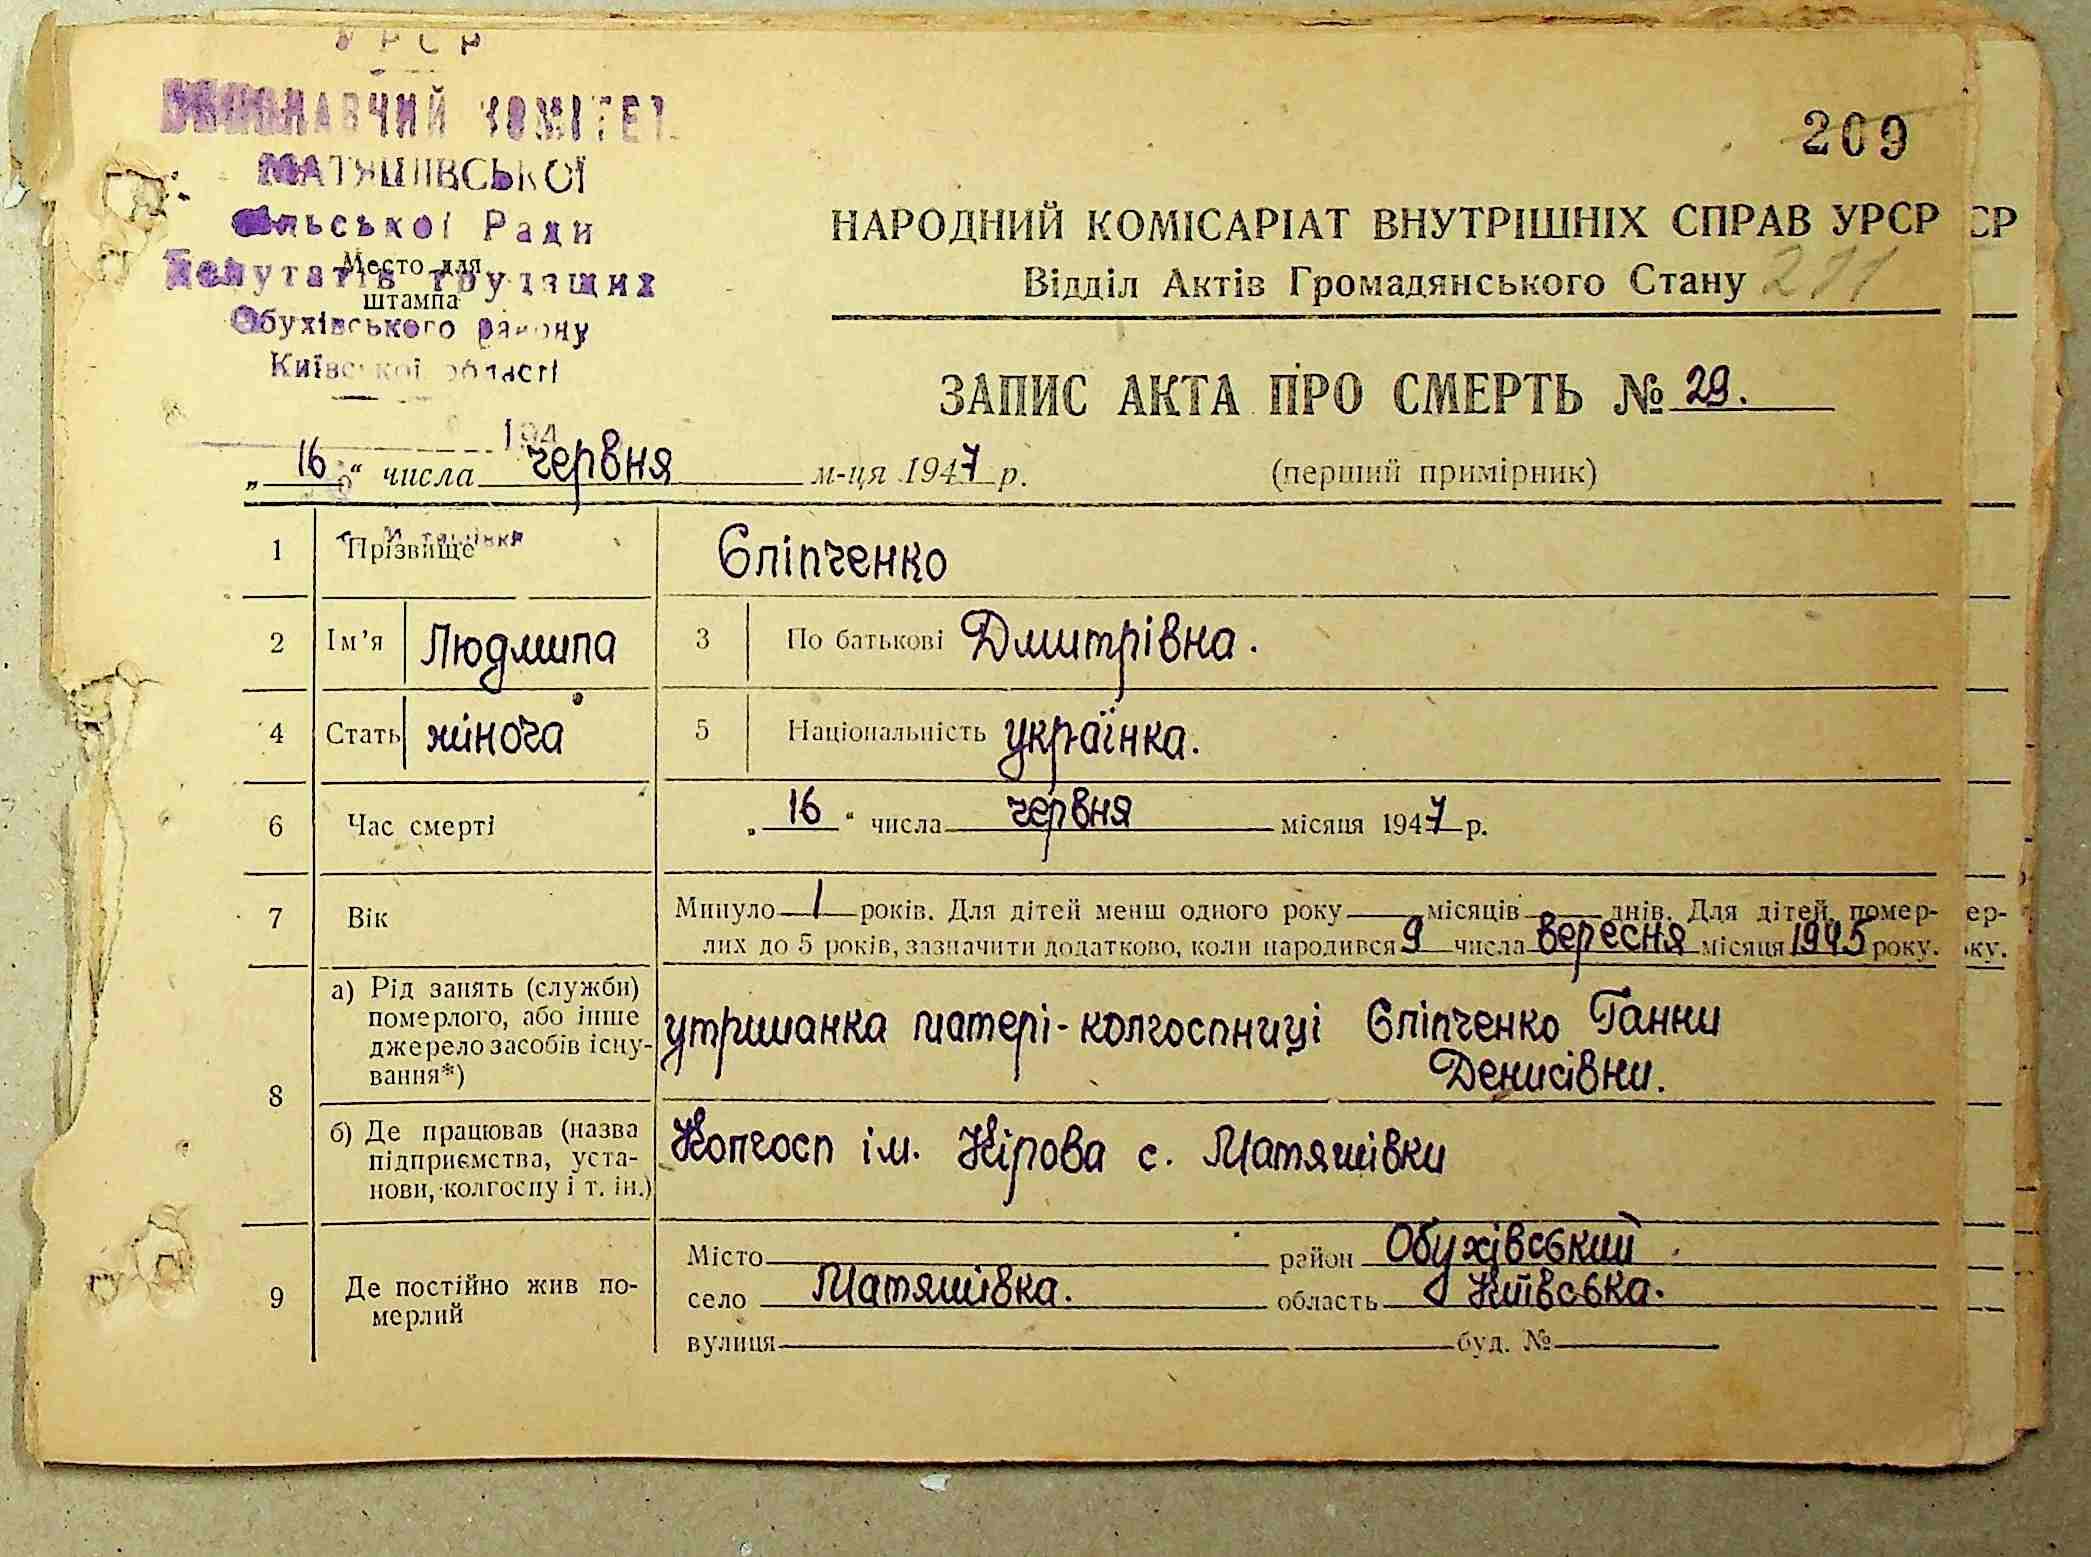 УРСР
ВИКОНАВЧИЙ КОМІТЕТ
МАТЯШІВСЬКОЇ
сільської Ради
Депутатів трудящих
Место для
штампа
Обухівського району
Київської області
194
209
НАРОДНИЙ КОМІСАРІАТ ВНУТРІШНІХ СПРАВ УРСР
СР
Відділ Актів Громадянського Стану
211
ЗАПИС АКТА ПРО СМЕРТЬ № 29.
„16“ числа червня м-ця 1947 р. (перший примірник)
1 Прізвище Єліпченко
2 Ім’я Людмила 3 По батькові Дмитрівна.
4 Стать жіноча 5 Національність українка.
6 Час смерті „16“ числа червня місяця 1947 р.
7 Вік Минуло 1 років. Для дітей менш одного року місяців днів. Для дітей, помер-
ер-
лих до 5 років, зазначити додатково, коли народився 9 числа вересня місяця 1945 року.
ку.
8 а) Рід занять (служби)
померлого, або інше
джерело засобів існу-
вання*)
утриманка матері-колгоспниці Єліпченко Ганни
Денисівни.
б) Де працював (назва
підприємства, уста-
нови, колгоспу і т. ін.)
Колгосп ім. Кірова с. Матяшівки
9 Де постійно жив по-
мерлий
Місто район Обухівський
село Матяшівка. область Київська.
вулиця буд. №